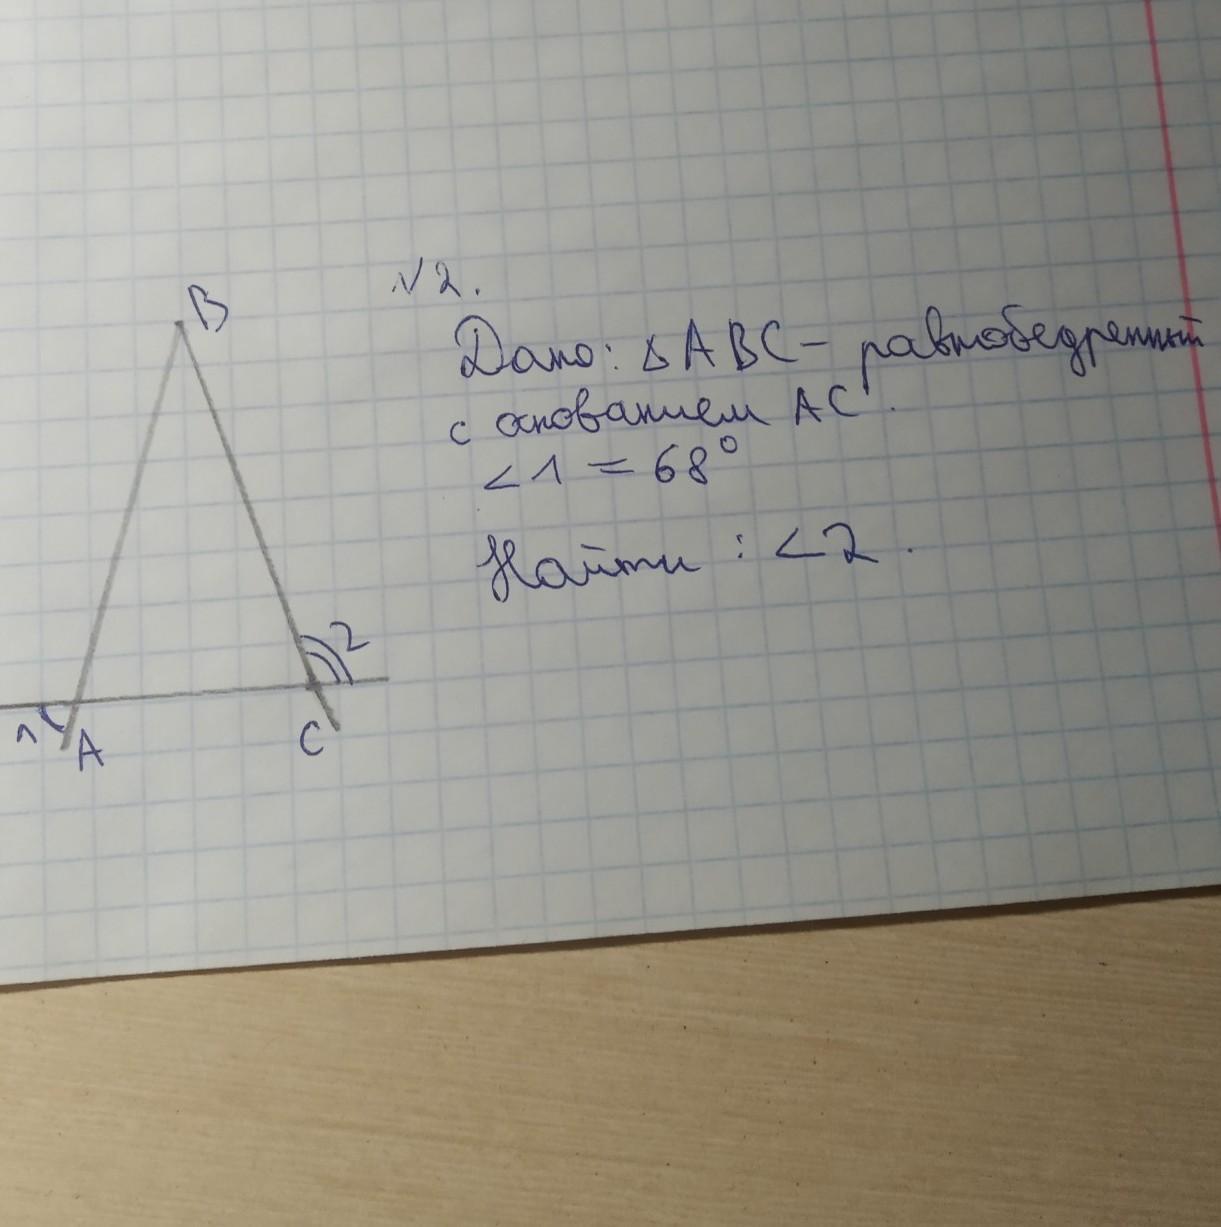 №2.
B
Дано: △ABC - равнобедренный
с основанием AC.
∠1 = 68°
Найти: ∠2.
2
1
A
C